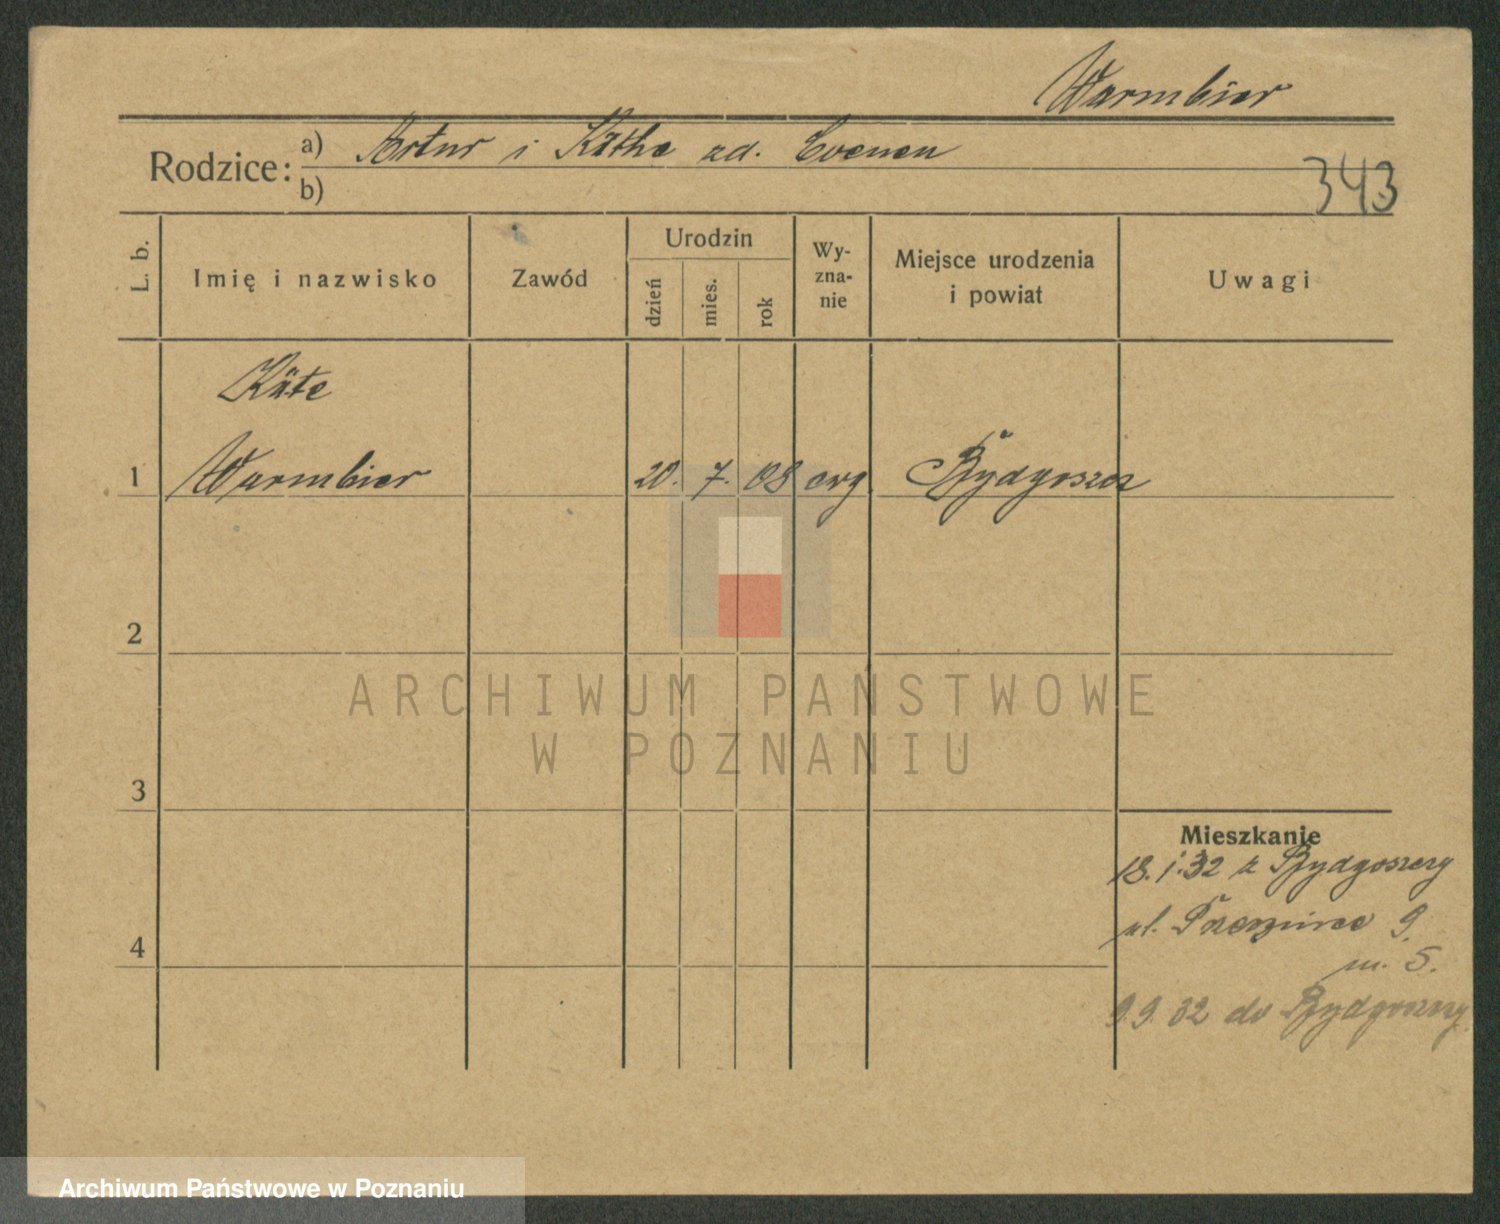 Warmbier
Rodzice: a) Artur i Käthe zd.
b)
343
L. b.
Imię i nazwisko
Zawód
Urodzin
dzień
mies.
rok
Wy-
zna-
nie
Miejsce urodzenia
i powiat
Uwagi
Käte
1 Warmbier 20. 7. 08 ewg. Bydgoszcz
2
ARCHIWUM PAŃSTWOWE
W POZNANIU
3
Mieszkanie
18.1.32 z Bydgoszczy
ul. 9.
4
m. 5.
9.9.32 do Bydgoszczy
Archiwum Państwowe w Poznaniu